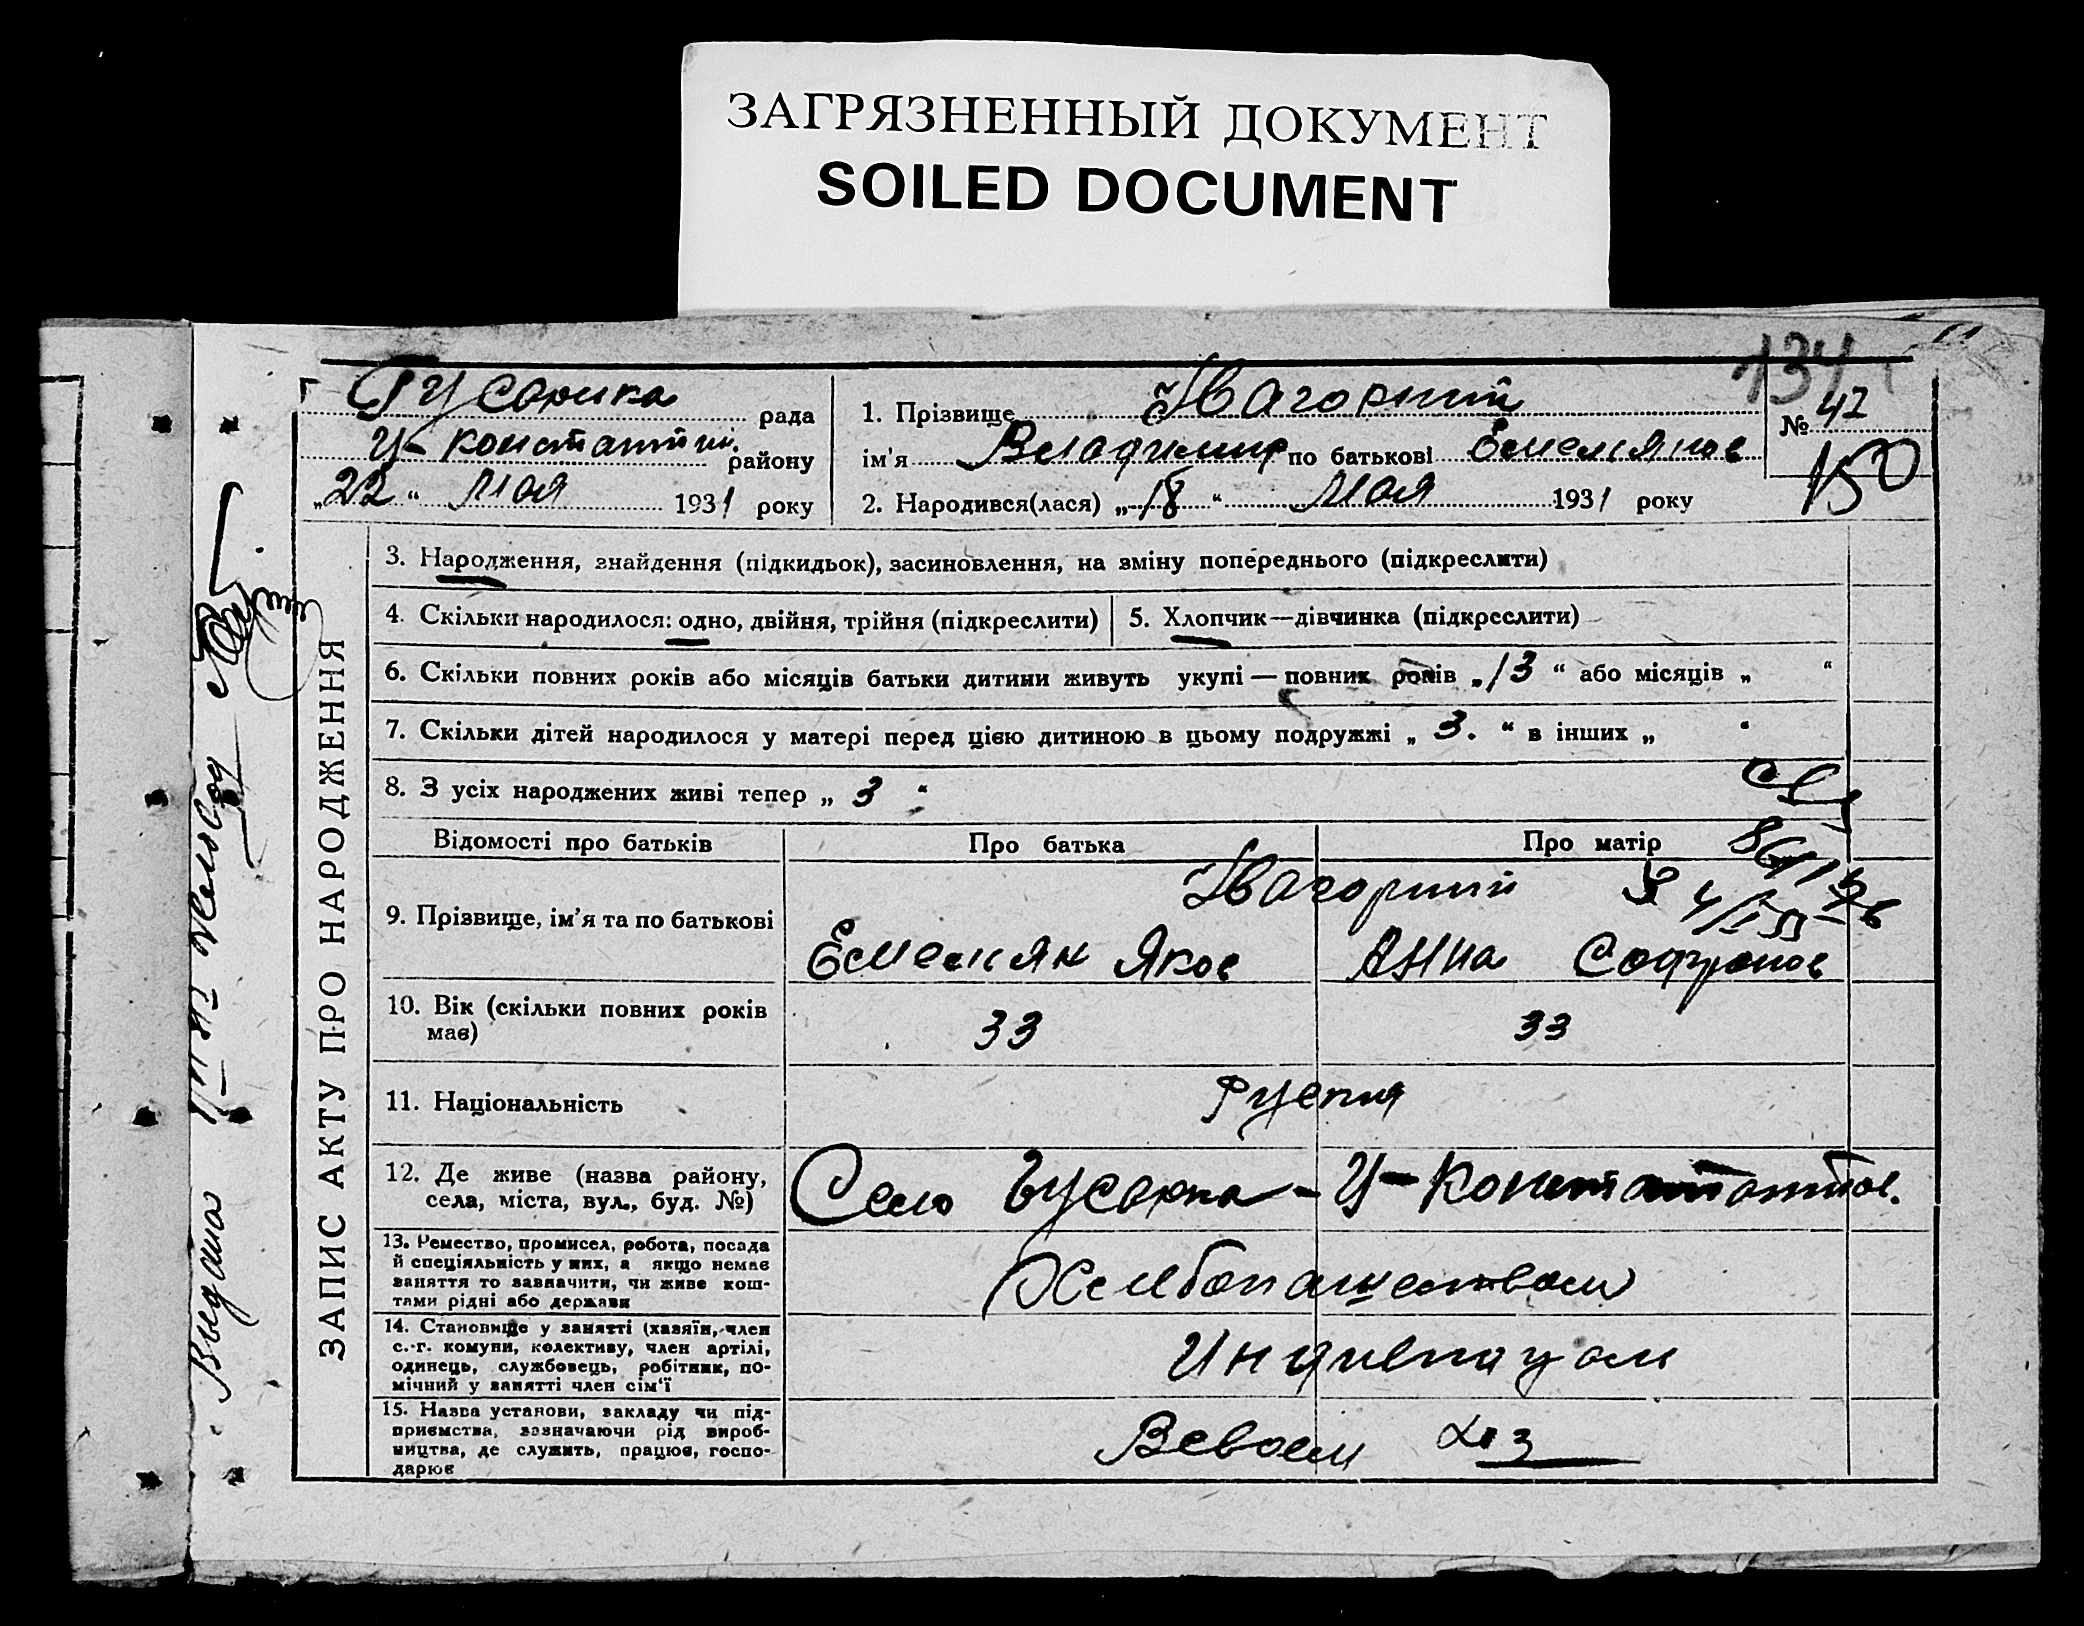 ЗАГРЯЗНЕННЫЙ ДОКУМЕНТ
SOILED DOCUMENT
134
рада
Ц-констант района
району
„22“ Мая 1931 року
1. Прізвище
№ 42
150
ім'я Владимир по батькові Емельянов
2. Народився(лася) „18“ Мая 1931 року
ЗАПИС АКТУ ПРО НАРОДЖЕННЯ
3. Народження, знайдення (підкидьок), засиновлення, на зміну попереднього (підкреслити)
4. Скільки народилося: одно, двійня, трійня (підкреслити)
5. Хлопчик—дівчинка (підкреслити)
6. Скільки повних років або місяців батьки дитини живуть укупі — повних років „13“ або місяців „ “
7. Скільки дітей народилося у матері перед цією дитиною в цьому подружжі „3.“ в інших „ “
8. З усіх народжених живі тепер „3“
Відомості про батьків
Про батька
Про матір
9. Прізвище, ім'я та по батькові
Емельян Яков
Анна Софронов
10. Вік (скільки повних років має)
33
33
11. Національність
12. Де живе (назва району,
села, міста, вул., буд. №)
Село
13. Ремество, промисел, робота, посада
й спеціяльність у них, а якщо немає
заняття то зазначити, чи живе кош-
тами рідні або держави
Хлебопашеством
14. Становище у занятті (хазяїн, член
с.-г. комуни, колективу, член артілі,
одинець, службовець, робітник, по-
мічний у занятті член сім'ї
15. Назва установи, закладу чи під-
приємства, зазначаючи рід вироб-
ництва, де служить, працює, госпо-
дарює
Всвоем хоз